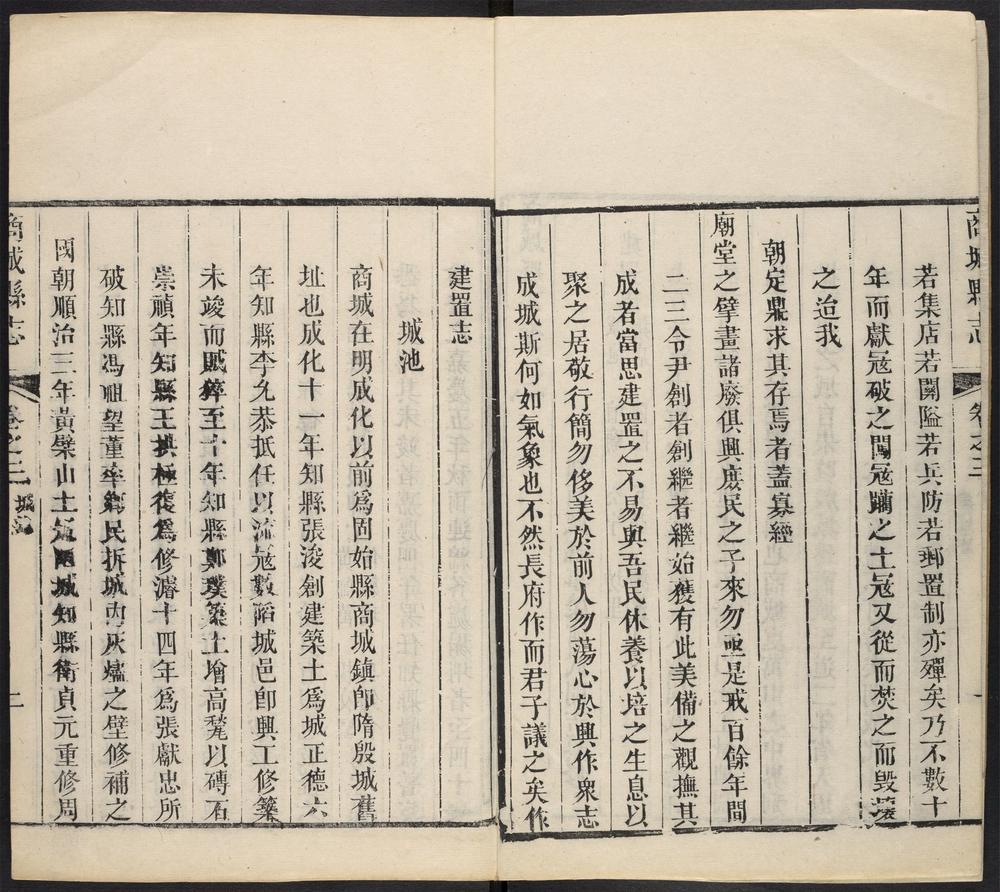 商城縣志
卷之三
若集店若關隘若兵防若郵置制亦殫矣乃不數十
年而獻寇破之闖寇躪之土寇又從而焚之而毀
之迨我
朝定鼎求其存焉者蓋寡經
廟堂之擘畫諸廢俱興庶民之子來勿亟是戒百餘年間
二三令尹創者創繼者繼始獲有此美備之觀撫其
成者當思建置之不易與吾民休養以培之生息以
聚之居敬行簡勿侈美於前人勿蕩心於興作衆志
成城斯何如氣象也不然長府作而君子議之矣作
建置志
城池
商城在明成化以前爲固始縣商城鎮卽隋殷城舊
址也成化十一年知縣張浚創建築土爲城正德六
年知縣李允恭抵任以流寇數陷城邑卽興工修築
未竣而賊猝至十年知縣鄭璞築土增高甃以磚石
崇禎年知縣王拱極復爲修濬十四年爲張獻忠所
破知縣馮祖望董率鄉民拆城內灰燼之壁修補之
國朝順治三年黃檗山土冦陷城知縣衛貞元重修周
商城縣志
卷之三
城池
二